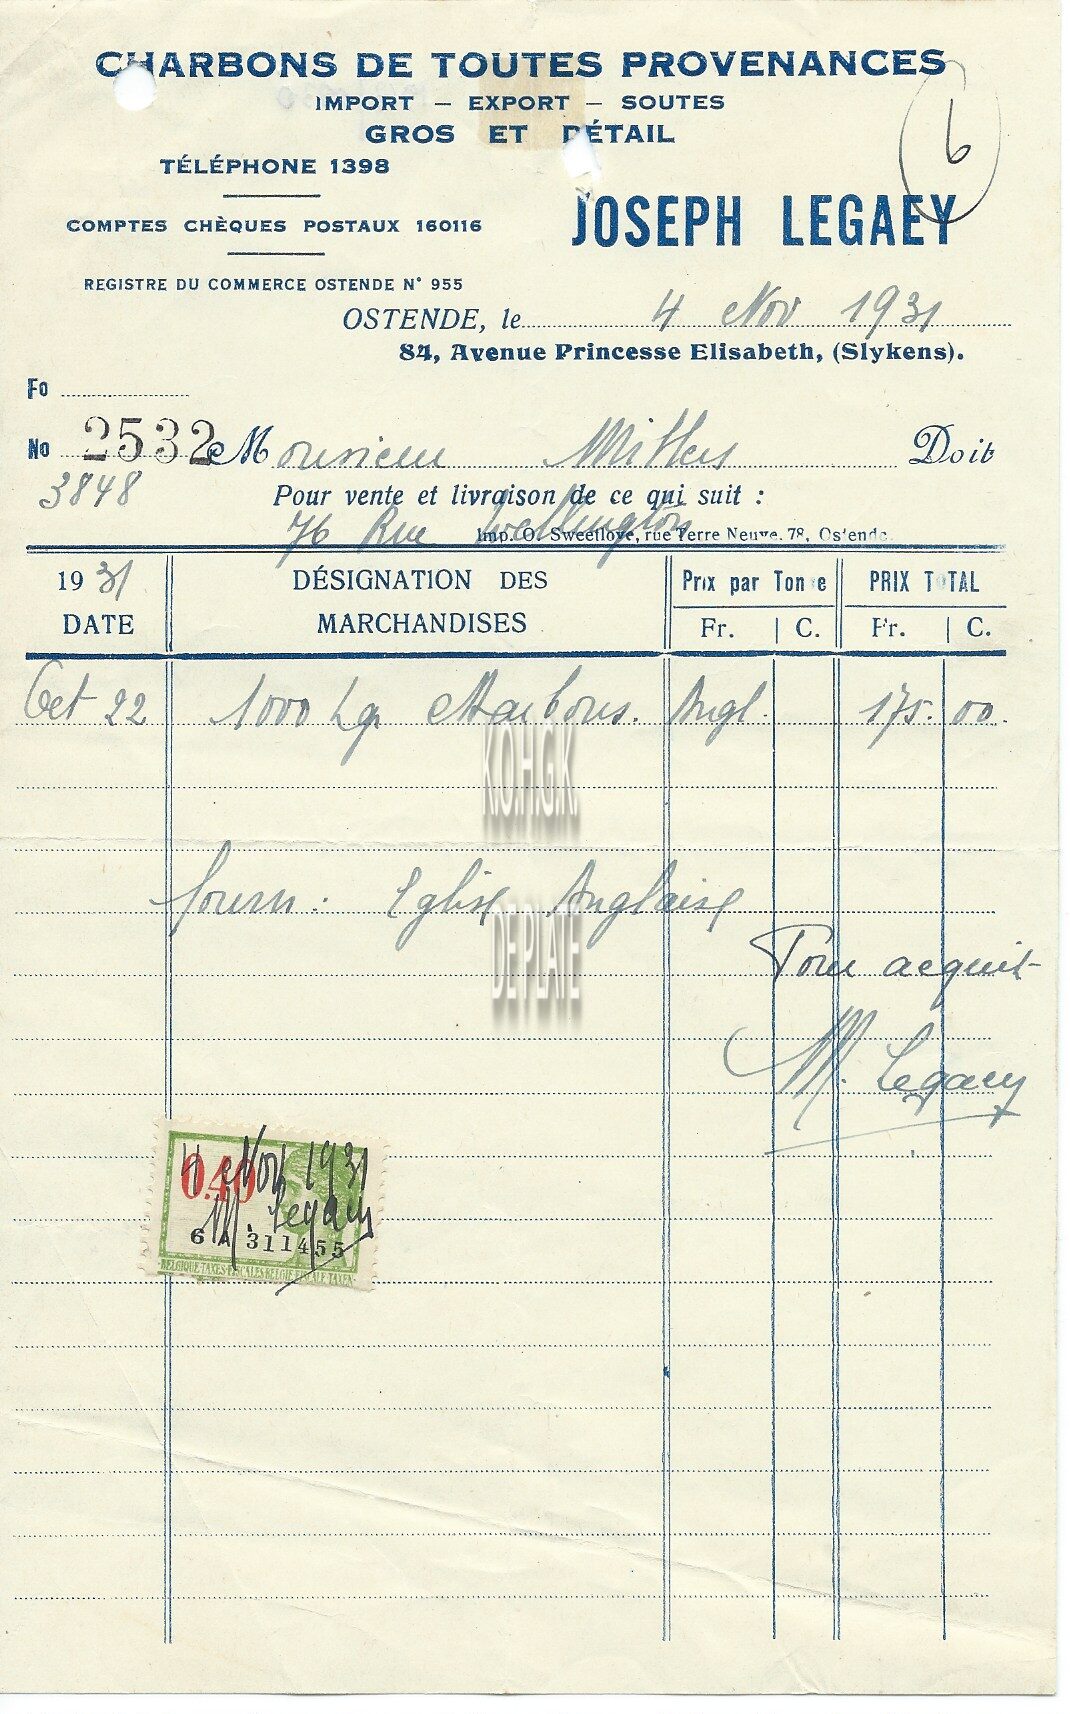 CHARBONS DE TOUTES PROVENANCES
IMPORT — EXPORT — SOUTES
GROS ET DÉTAIL
6
TÉLÉPHONE 1398
COMPTES CHÈQUES POSTAUX 160116
JOSEPH LEGAEY
REGISTRE DU COMMERCE OSTENDE N° 955
OSTENDE, le 4 Nov 1931
84, Avenue Princesse Elisabeth, (Slykens).
Fo
No 2532 Monsieur Doit
3848
Pour vente et livraison de ce qui suit :
76 Rue Wellington
Imp. O. Sweetlove, rue Terre Neuve, 78, Ostende.
1931 DATE
DÉSIGNATION DES MARCHANDISES
Prix par Tonne
PRIX TOTAL
Fr. C. Fr. C.
Oct 22 1000 kg Charbons. Angl. 175. 00.
K.O.H.G.K.
fourn: Eglise Anglaise
DE PLATE
Pour acquit
M. Legaey
0.40
4 Nov 1931
M. Legaey
6 A 311455
BELGIQUE TAXES FISCALES BELGIE FISCALE TAXEN